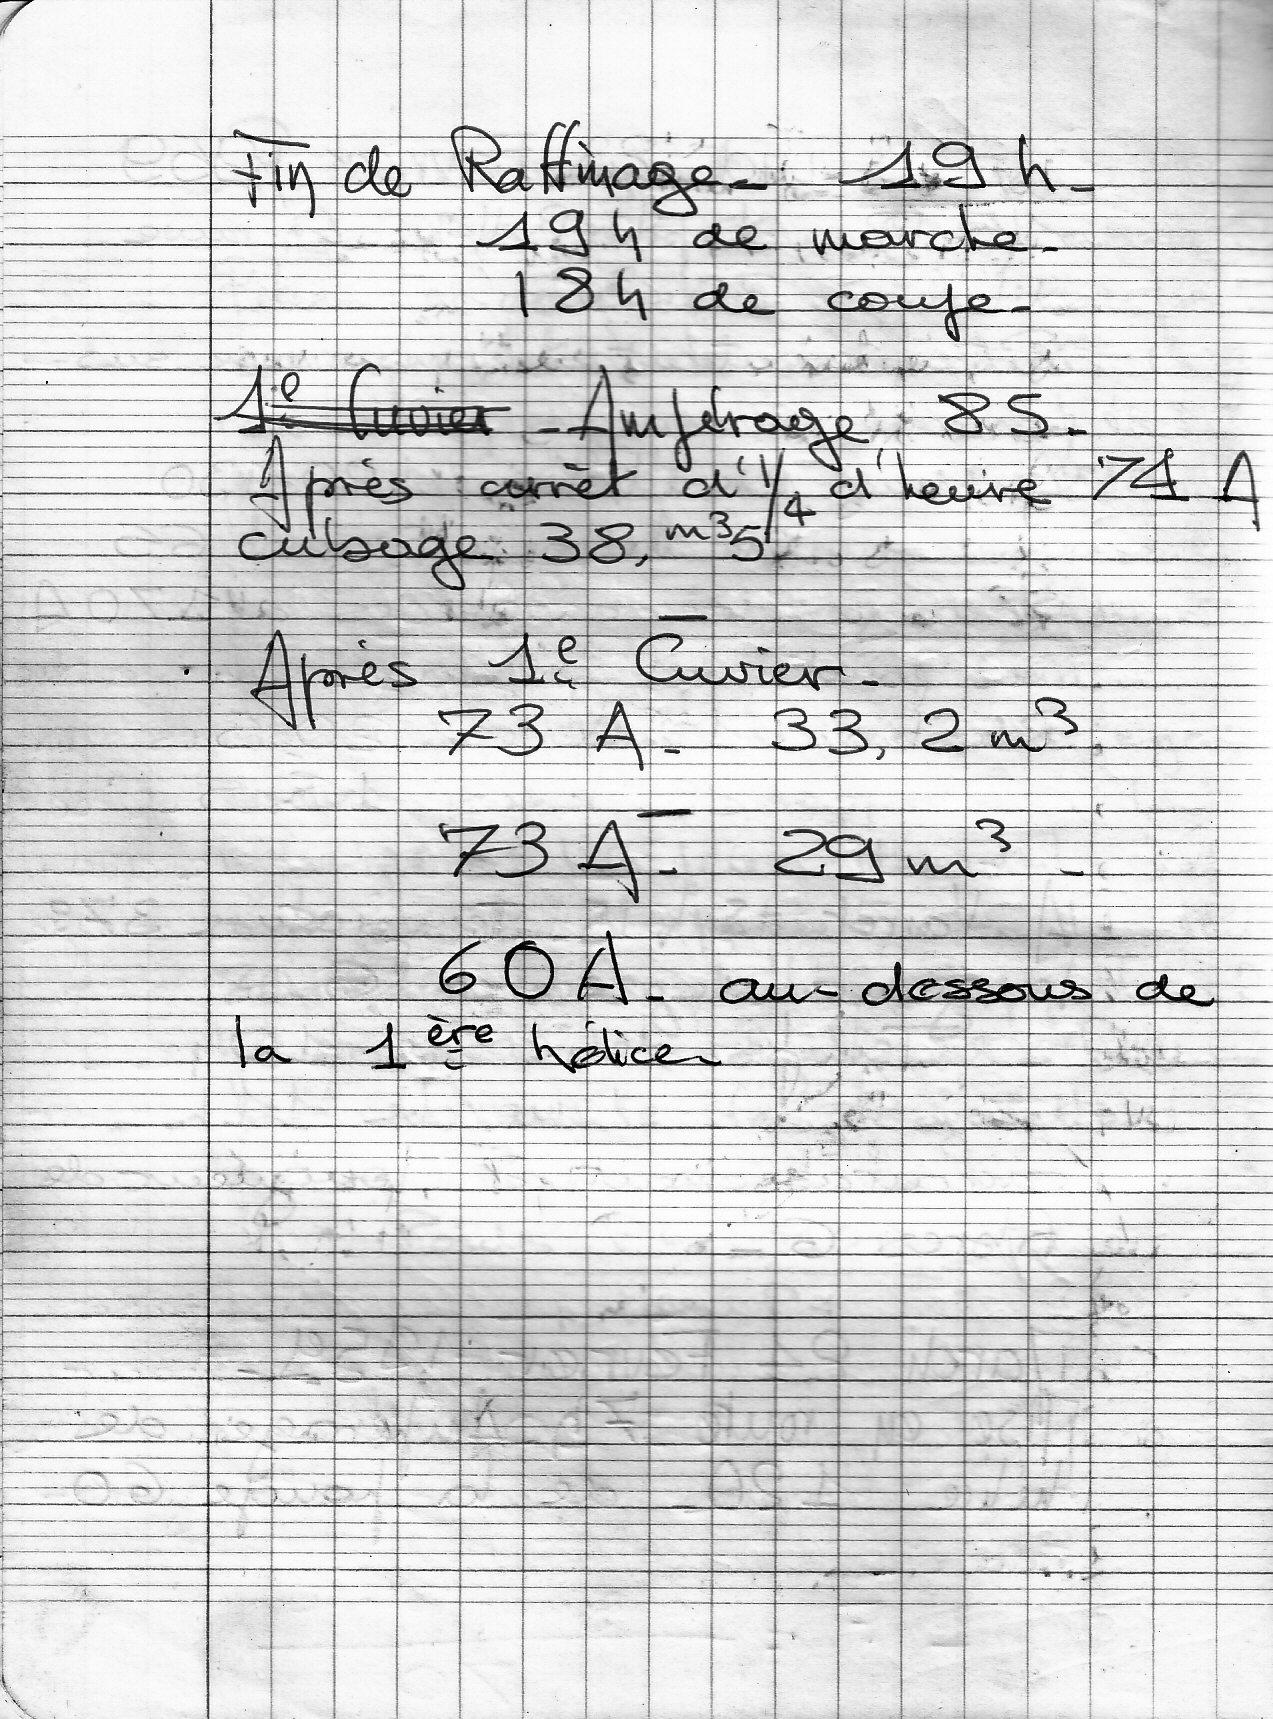 Fin de Raffinage - 19 h -
19 h de marche -
18 h de coupe -
1e Cuvier - Ampérage 85 -
Après arrêt d'1/4 d'heure 74 A
cubage 38,m³5
Après 1e Cuvier -
73 A - 33,2 m³
73 A - 29 m³ -
60 A - au-dessous de
la 1ère hélice -